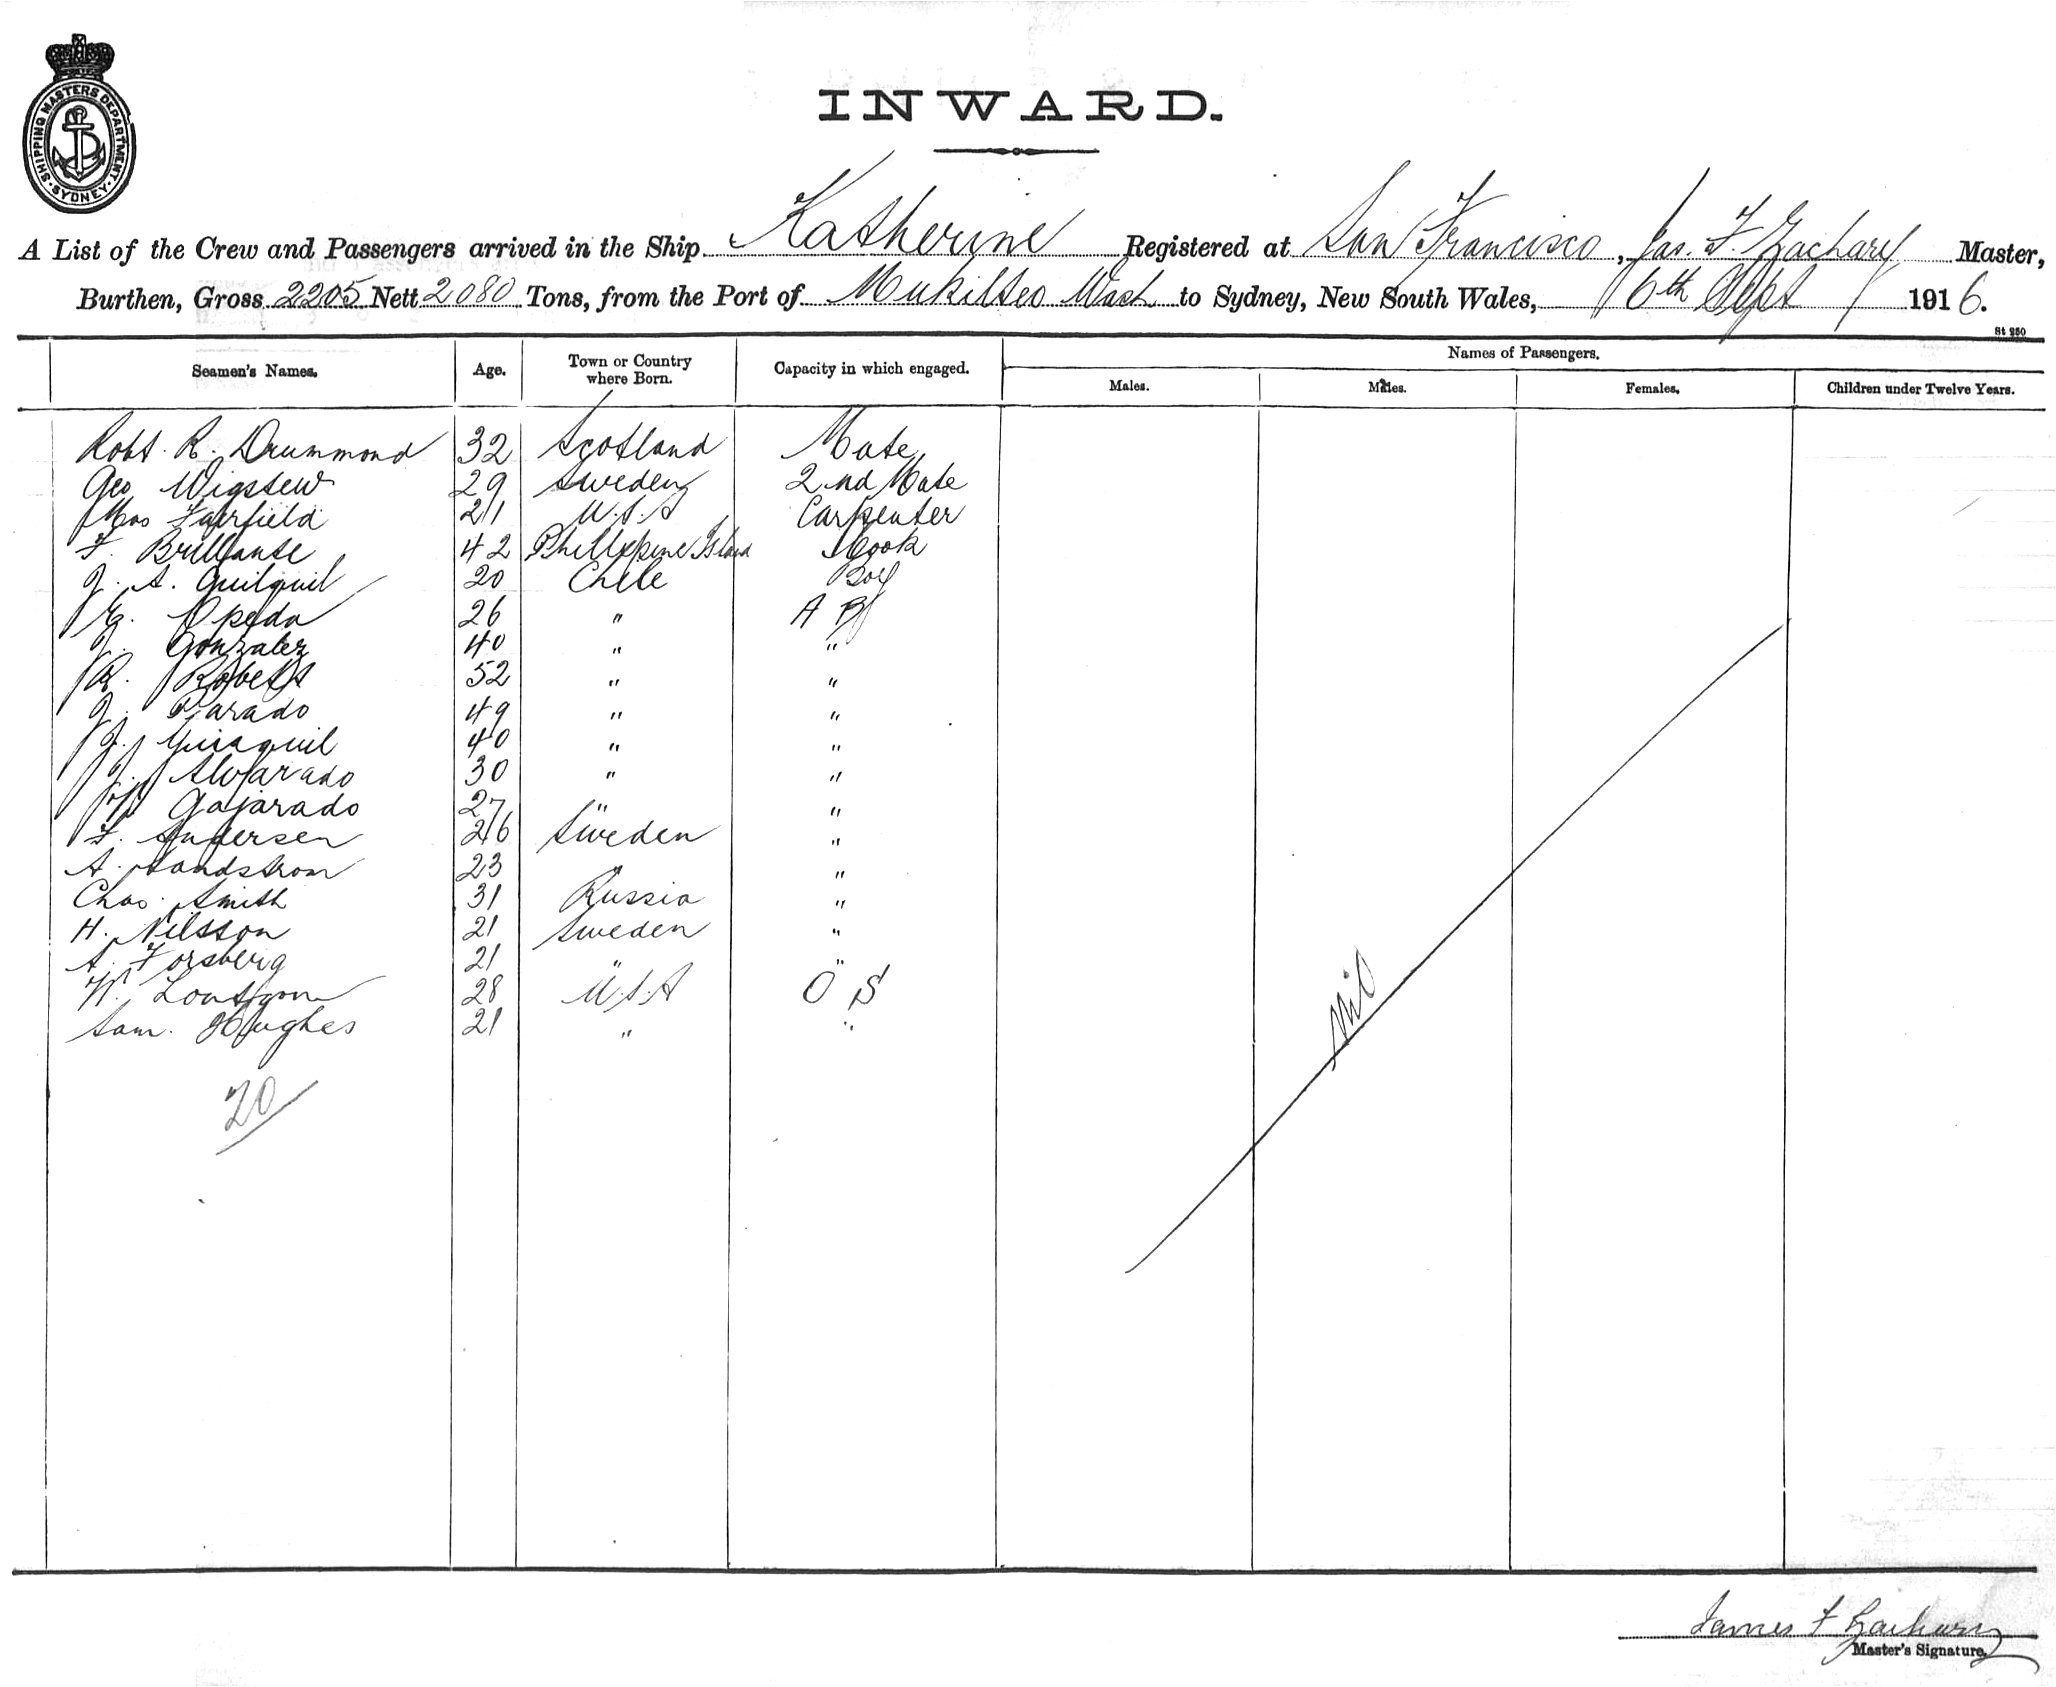 SHIPPING MASTERS DEPARTMENT
SYDNEY
INWARD.
A List of the Crew and Passengers arrived in the Ship Katherine Registered at San Francisco, Jas. F. Zachary Master,
Burthen, Gross 2205 Nett 2080 Tons, from the Port of Mukilteo Wash to Sydney, New South Wales, 6th Sept 1916.
St 250
Seamen's Names. Age. Town or Country where Born. Capacity in which engaged. Names of Passengers.
Males. Males. Females. Children under Twelve Years.
Robt. R. Drummond 32 Scotland Mate
Geo Wigstew 29 Sweden 2nd Mate
Fairfield 21 U.S.A Carpenter
F. Brillante 42 Phillipine Island Cook
J. A. Quilquil 20 Chile Boy
Opeda 26 " A B
J. Gonzalez 40 " "
R. Roberts 52 " "
J. Parado 49 " "
J. 40 " "
J. Alvarado 30 " "
Gajarado 27 " "
F. Andersen 26 Sweden "
A. Sandstrom 23 " "
Chas. Smith 31 Russia "
H. Nilsson 21 Sweden "
A. Forsberg 21 " "
W. 28 U.S.A O S
Sam. Hughes 21 " "
Nil
20
James F Zachary
Master's Signature.